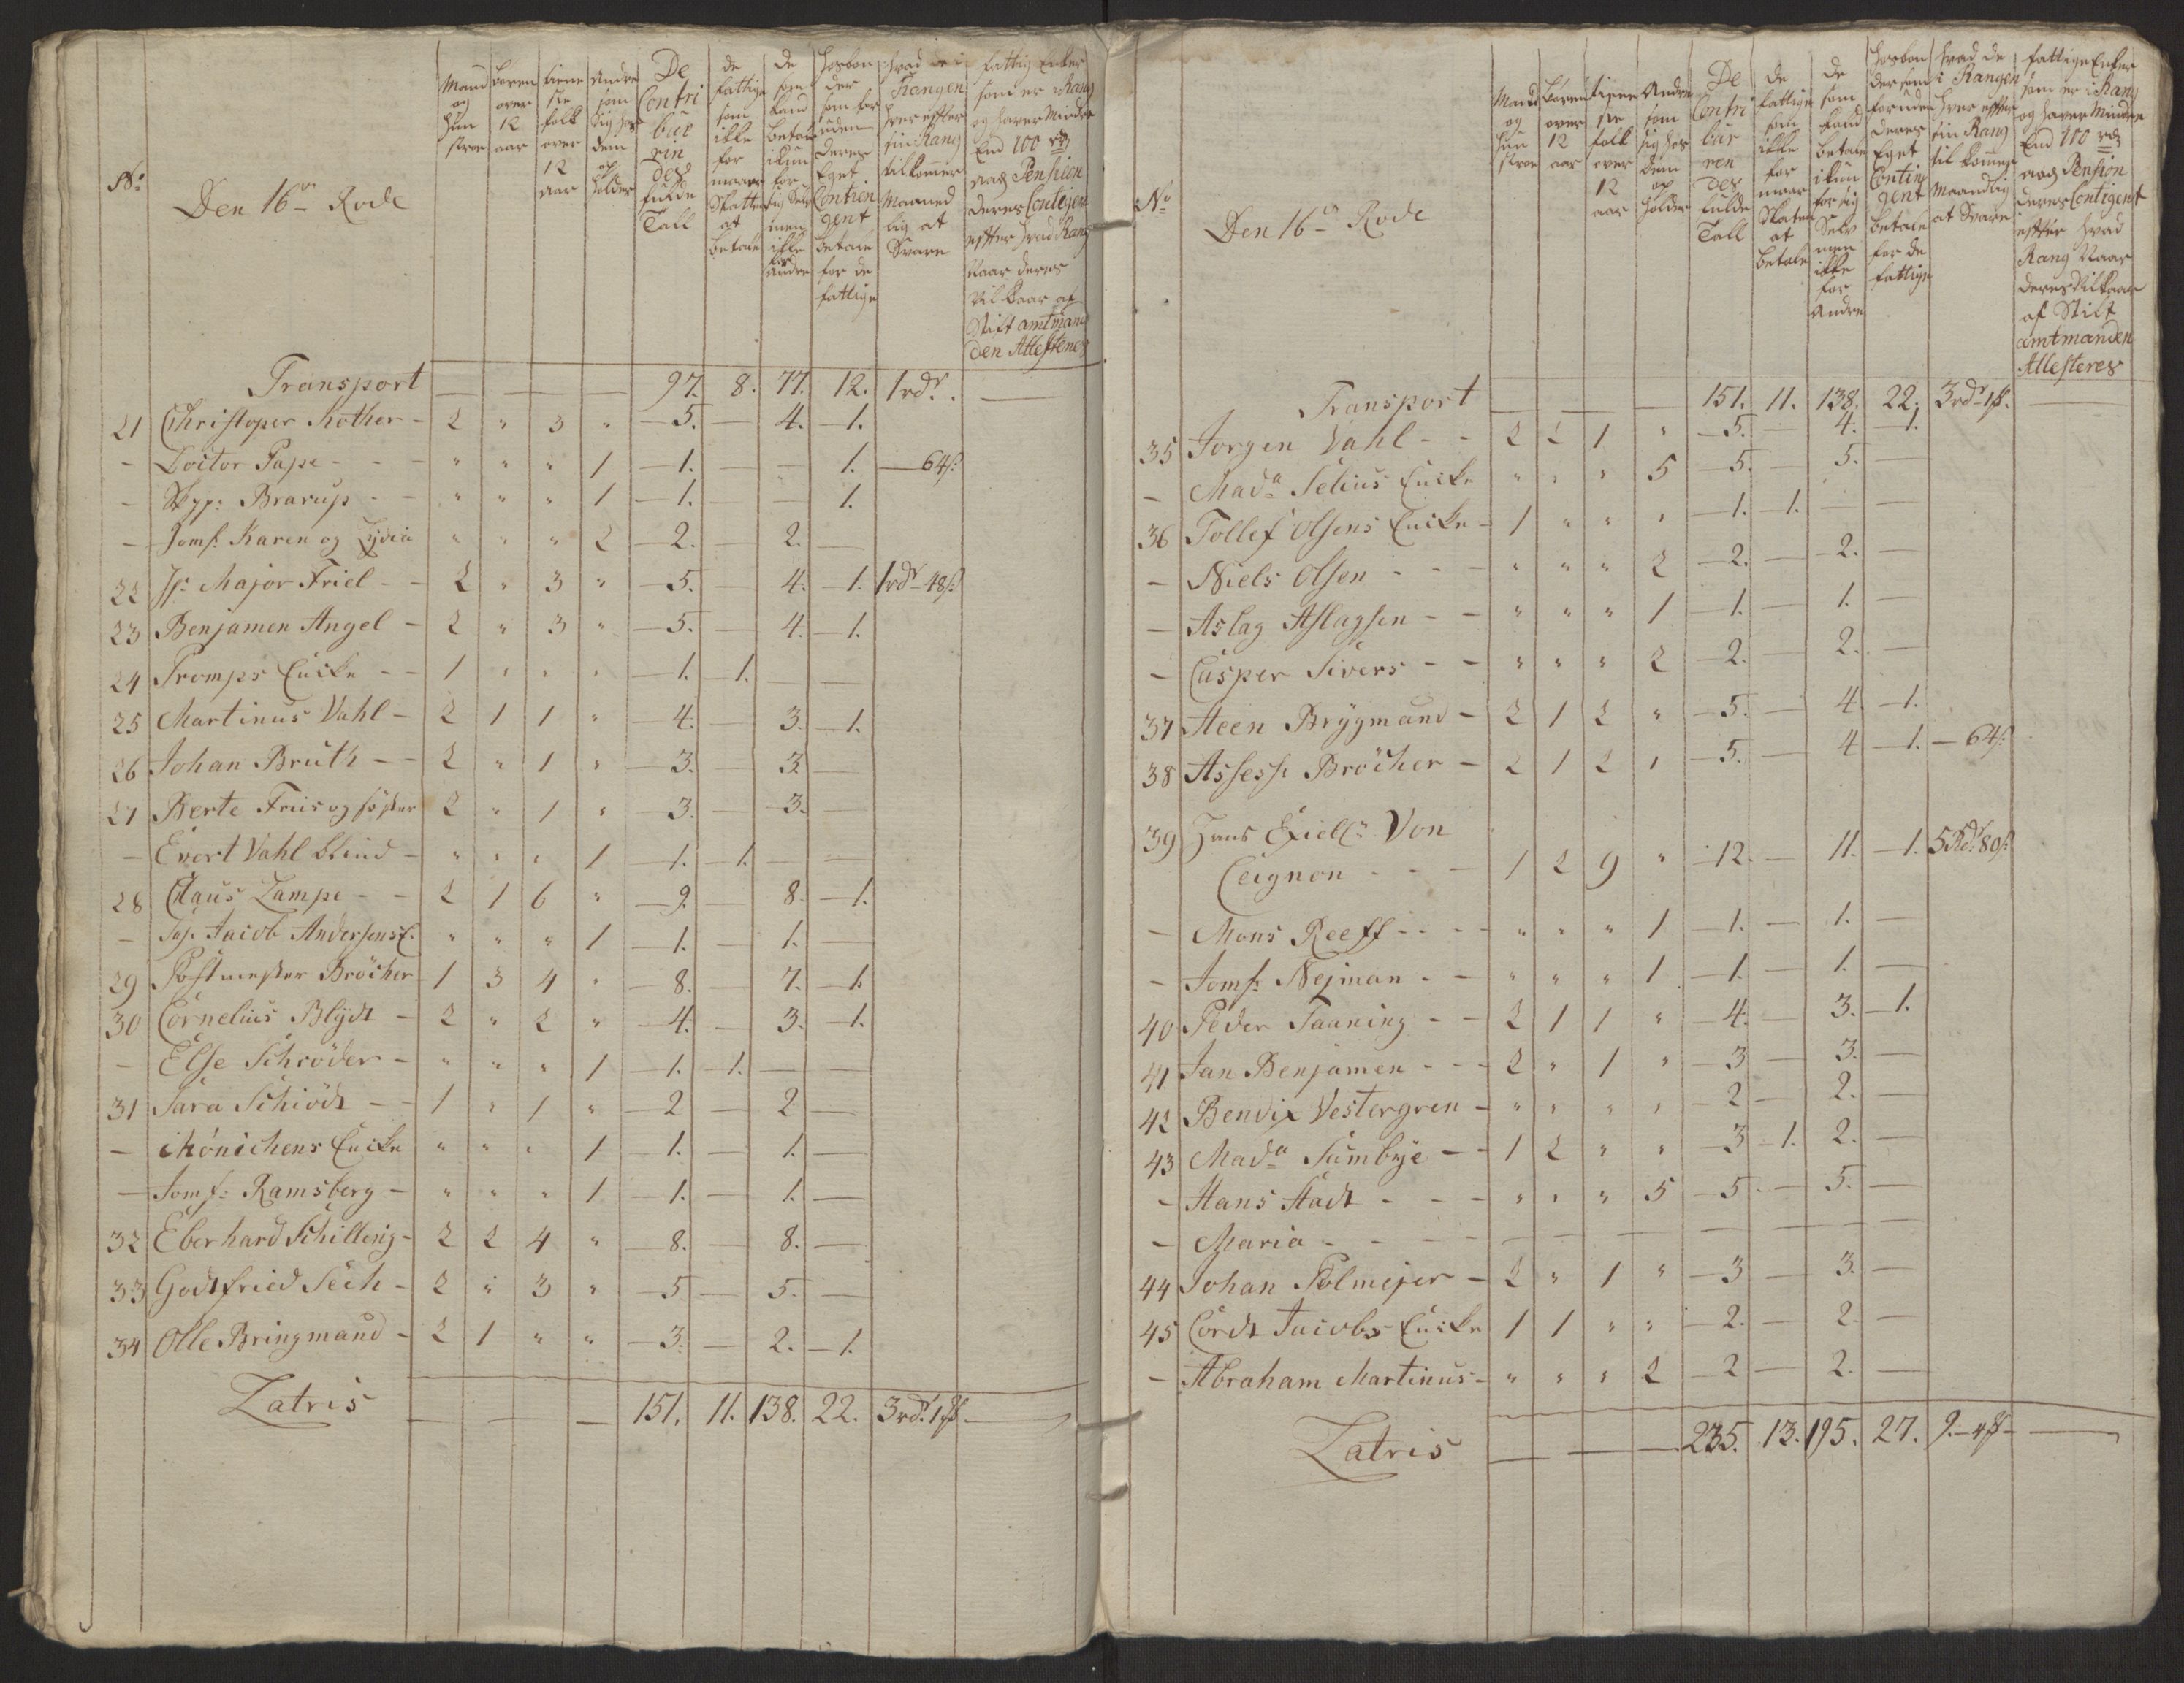 No
Den 16de Rode
Mand og Hun stroe
Boren over 12 aar
tiene ste folk over 12 aar
Andre som sig hos dem op holder
De Contri bue rin des fulde Tall
de fattige som ikke for maar Skatten at betale
De som kand betale ikun for sig Selv men ikke for Andre
Hosbon der som for uden Deres Eget Contien gent betale for de fattige
hvad de i Rangen hver efter sin Rang tilkommer Maaned lig at Svare
fattig Encker som er i Rang og haver Mindre End 100 rd aarl Pension deres Contigent efter hvad Rang Naar deres Vilkaar af Stift amtmand den Attesteres
Transport — — — 97. 8. 77. 12. 1 rdr. —
21 Christoper Rother - 2 " 3 " 5. — 4. 1.
- Doctor Pape - - " " " 1 1. — — 1. — 64ß.
- Skpp: Brarup - - " " " 1 1. — 1.
- Jomf: Karen og Lydia " " " 2 2. — 2. —
22 Hr. Major Friel - - 2 " 3 " 5. — 4. 1. 1rdr 48ß.
23 Benjamen Angel - 2 " 3 " 5. — 4. 1.
24 Tromps Encke - - 1 " " " 1. 1. — —
25 Martinus Vahl - 2 1 1 " 4. — 3. 1.
26 Johan Bruth - - 2 " 1 " 3. — 3 —
27 Berte Friis og söster 2 " 1 " 3. — 3. —
- Evert Vahl blind - " " " 1 1. 1. — —
28 Claus Lampe - - 2 1 6 " 9. — 8. 1.
- Sal. Jacob Andersens E. " " " 1 1. — 1. —
29 Postmester Bröcher 1 3 4 " 8. — 7. 1.
30 Cornelius Blÿdt - 2 " 2 " 4. — 3. 1.
- Else Schröder - " " " 1 1. 1. — —
31 Sara Schiödt - - 1 " 1 " 2 — 2 —
- Mönichens Encke " " " 1 1. — 1. —
- Jomf: Ramsberg - " " " 1 1. — 1. —
32 Eberhard Schilling - 2 2 4 " 8. — 8. —
33 Godtfried Sech - 2 " 3 " 5 — 5. —
34 Olle Bringmand - 2 1 " " 3. — 2. 1.
Latris — — — 151. 11. 138. 22. 3 rdr. 16ß —
No
Den 16de Rode
Mand og Hun stroe
Boren over 12 aar
tiene ste folk over 12 aar
Andre som sig hos dem op holder
De Contri bue ren des fulde Tall
De fattige som ikke for maar Skaten at betale
De som kand betale ikun for sig Selv men ikke for Andre
Hosbon der som foruden deres Eget Contin gent betale for de fattige
hvad de i Rangen hver efter sin Rang til kommer Maandlig at Svare
fattige Encker som er i Rang og haver Mindre End 100 rd aarl Pension deres Contigent efter hvad Rang Naar deres Vilkaar af Stift amtmanden Attesteres
Transport — — — 151. 11. 138. 22. 3 rdr 16ß. —
35 Jorgen Vahl - - 2 2 1 " 5. — 4. 1.
- Mada Selius Encke " " " 5 5. — 5. —
36 Tollef Olsens Encke - 1 " " " 1. 1. — —
- Niels Olsen - - - " " " 2 2. — 2. —
- Aslag Aslagsen - - " " " 1 1. — 1. —
- Casper Sivers - - " " " 2 2. — 2. —
37 Steen Brÿgmand - 2 1 2 " 5. — 4 1.
38 Assess: Bröcher - 2 1 2 " 5. — 4 1. — 64ß.
39 Hans Exiell: Von
Ceignon - - - 1 2 9 " 12. — 11. 1. 5 Rdr 80ß
- Mons Reeff - - - " " " 1 1. — 1. —
- Jomf: Nejman - - " " " 1 1. — 1. —
40 Peder Taaning - - 2 1 1 " 4. — 3. 1.
41 Jan Benjamen - - - 2 " 1 " 3 — 3. —
42 Bendix Vestergren - " " " " 2 — 2. —
43 Mada Sumbÿe - - 1 2 " " 3 1. 2. —
- Hans Stadt - - - " " " 5 5. — 5. —
- Maria - - - - — — — — — — — —
44 Johan Polmejer - 2 " 1 " 3 — 3. —
45 Cordt Jacobs Encke 1 1 " " 2. — 2. —
- Abraham Martinus - " " " 2 2 — 2. —
Latris — — — 235. 13. 195. 27. 9. - 4ß - —